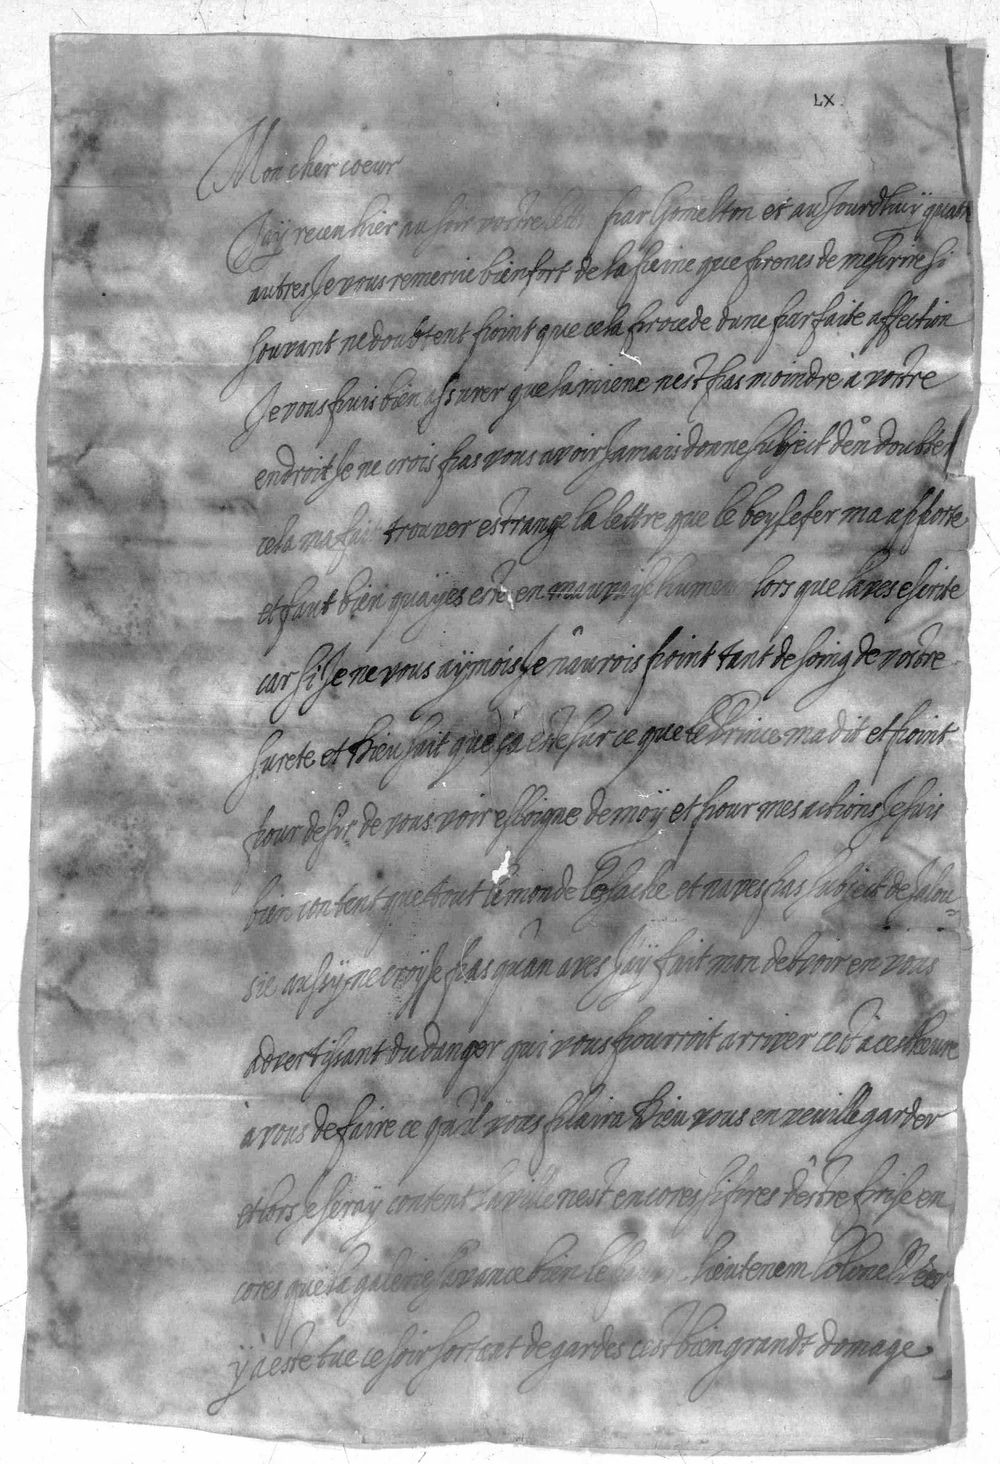 LX
Mon cher coeur
J'ay receu hier au soir vostre lettre par Gomelton et au Jourdhuiÿ quatre
autres Je vous remercie bien fort de la peine que prenes de mescrire si
souvant ne doubtent point que cela procede dune parfaite affection
Je vous puis bien assurer que la miene nest pas moindre à vostre
endroit Je ne crois pas vous avoir Jamais donne subject den doubter
cela ma fait trouver estrange la lettre que le beysefer ma apporte
et faut bien quayes este en mauvayse humeur lors que laves escrite
car si Je ne vous aymois Je naurois point tant de soing de vostre
surete et Dieu sait que ça este sur ce que le Prince ma dit et point
pour desir de vous voir esloigne de moÿ et pour mes actions Je suis
bien content que tout le monde les sache et naves pas subject de Jalou-
sie aussÿ ne croÿse pas quan aves J'aÿ fait mon debvoir en vous
advertysant du danger qui vous pourroit arriver cest a cest heure
à vous de faire ce qu'il vous plaira Dieu vous en veuille garder
et lors Je seraÿ content la ville nest encores si pres dêstre prise en
cores que la galerie savance bien le lieutenem Colonel
ÿ a este tue ce soir sortent de gardes cest bien grandt domage